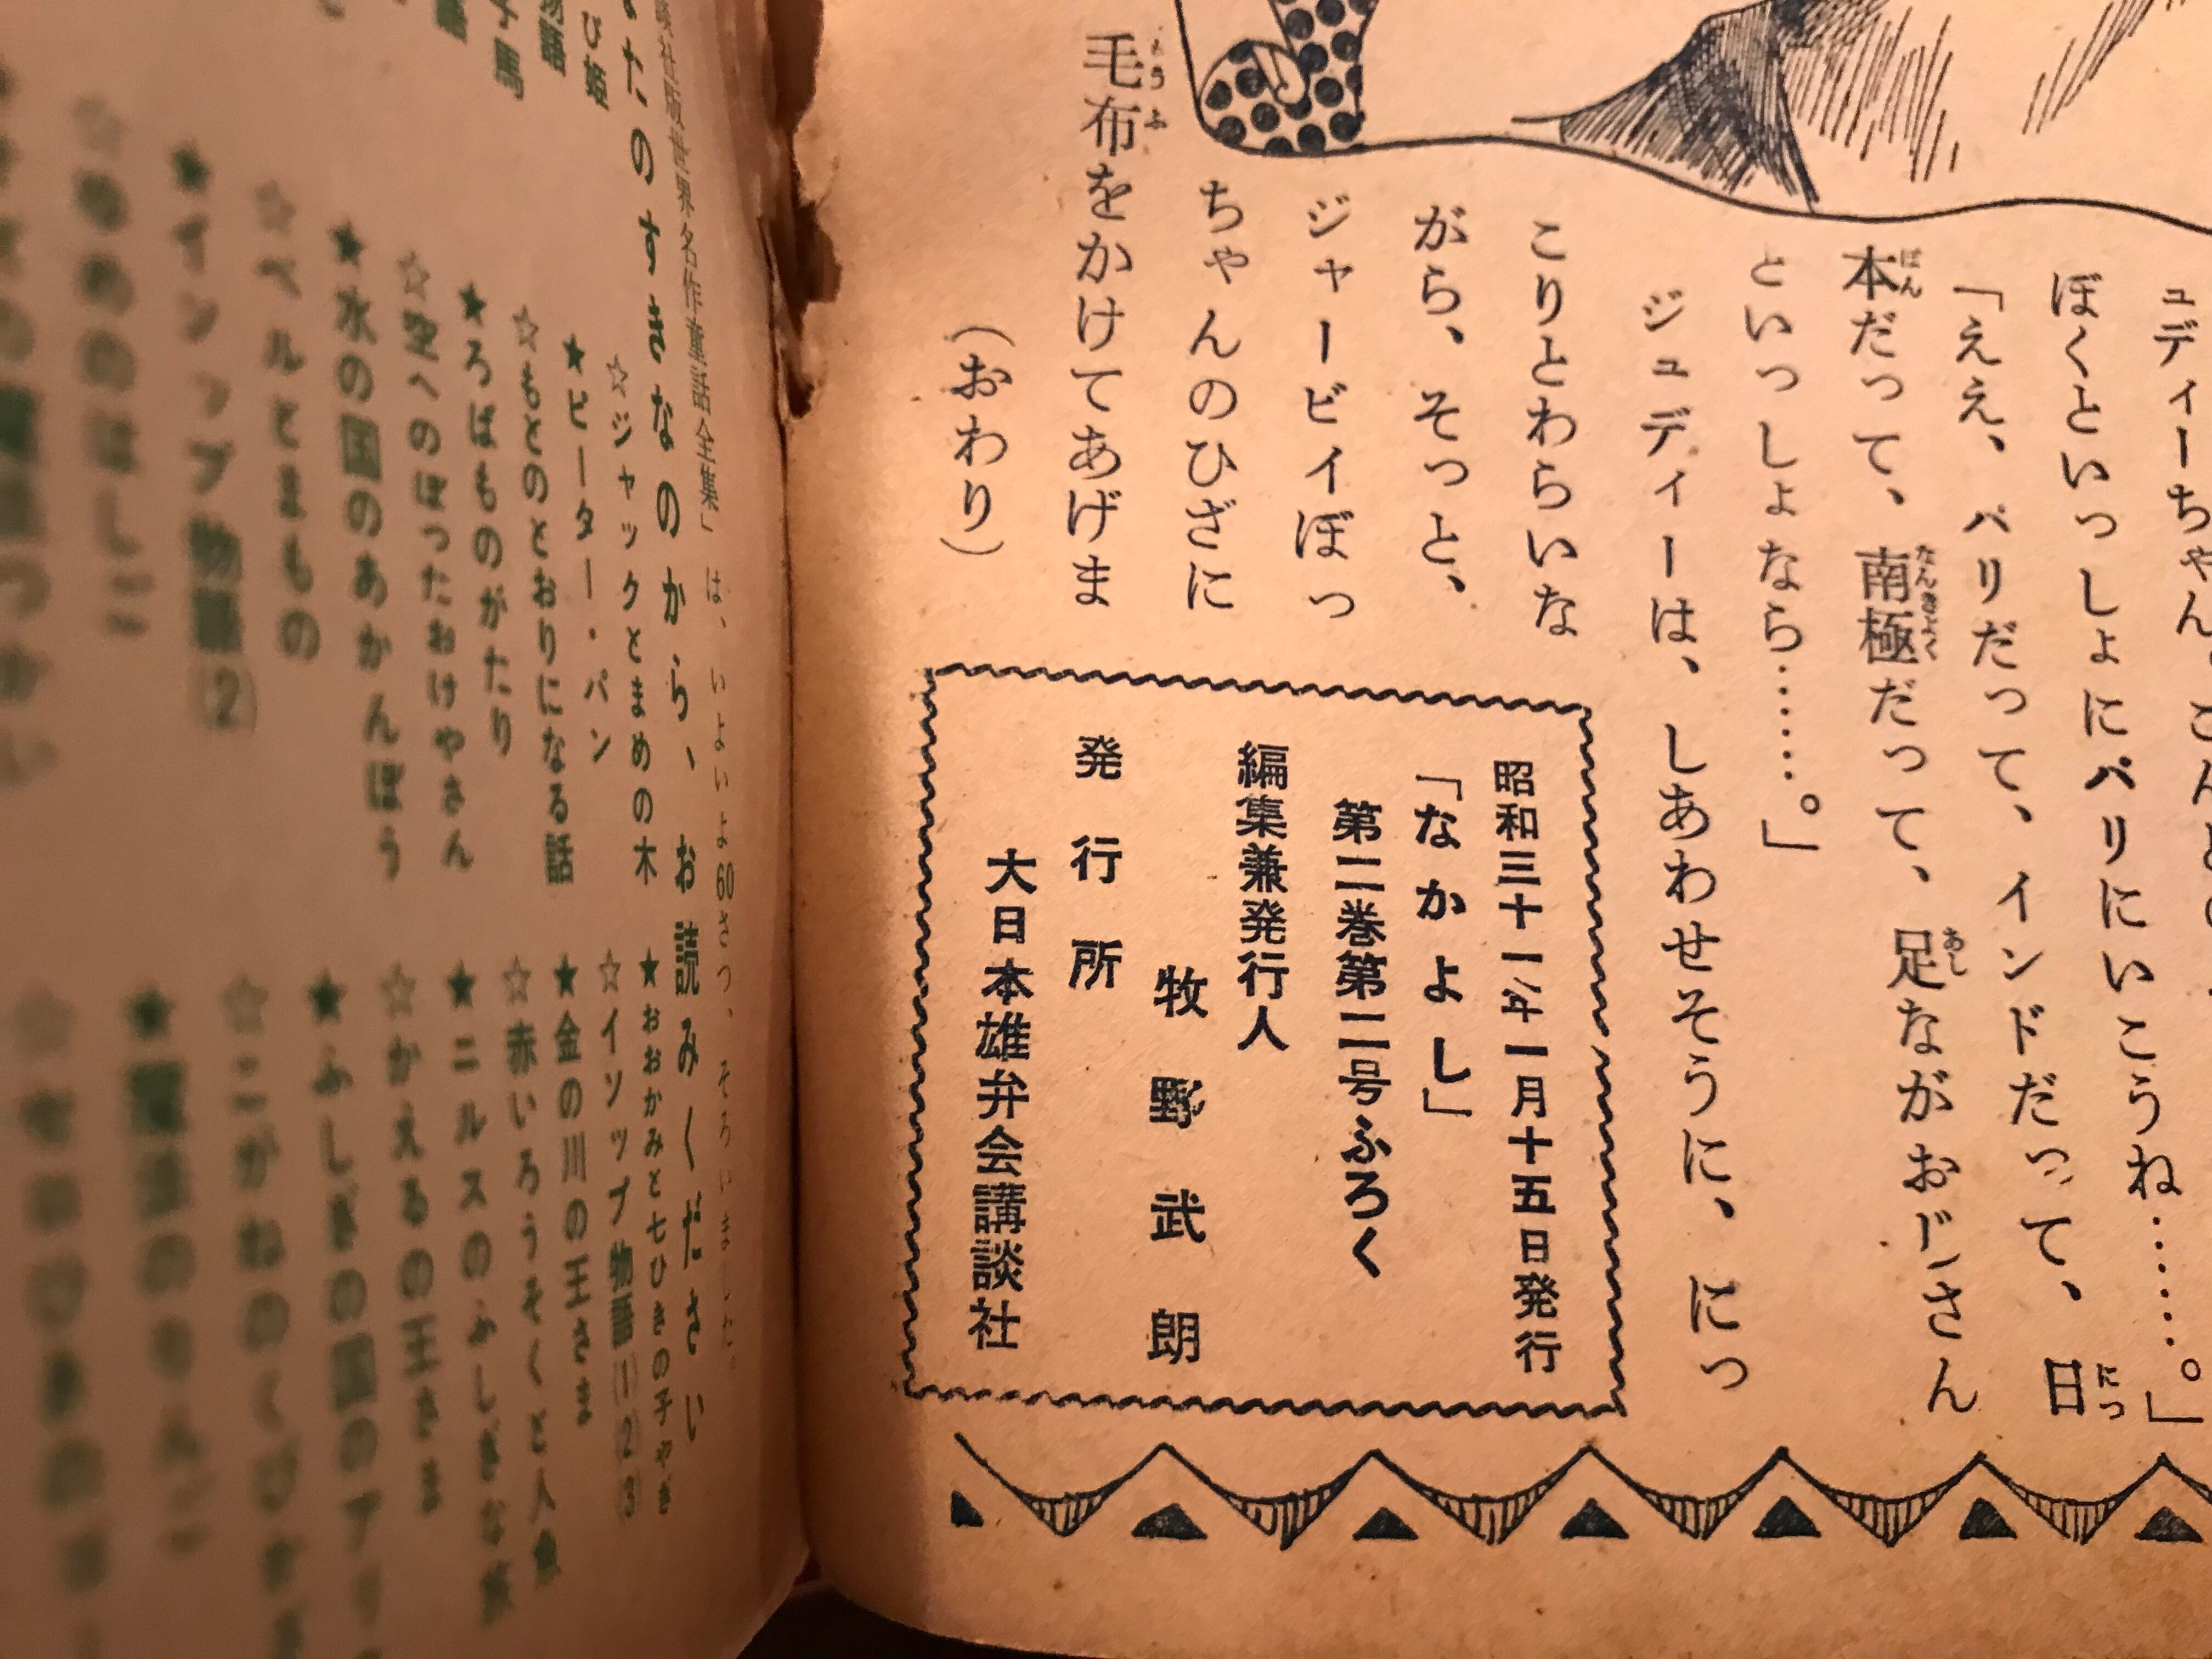 ュディーちゃん、こんどの
ぼくといっしょにパリにいこうね……。」
「ええ、パリだって、インドだって、日
本だって、南極だって、足ながおじさん
といっしょなら……。」
ジュディーは、しあわせそうに、にっ
こりとわらいな
がら、そっと、
ジャービイぼっ
ちゃんのひざに
毛布をかけてあげま
(おわり)
昭和三十一年一月十五日発行
「なかよし」
第二巻第二号ふろく
編集兼発行人
牧野武朗
発行所
大日本雄弁会講談社
世界名作童話全集」は、いよいよ60さつ、そろいました。
なたのすきなのから、お読みください
☆ジャックとまめの木
★ピーター・パン
☆もとのとおりになる話
★ろばものがたり
☆空へのぼったおけやさん
★水の国のあかんぼう
☆ベルとまもの
★イソップ物語(2)
☆ゆめのはしご
★おおかみと七ひきの子やぎ
☆イソップ物語(1)(2)(3)
★金の川の王さま
☆赤いろうそくと人魚
★ニルスのふしぎな旅
☆かえるの王さま
★ふしぎの国のアリ
☆こがねのくび